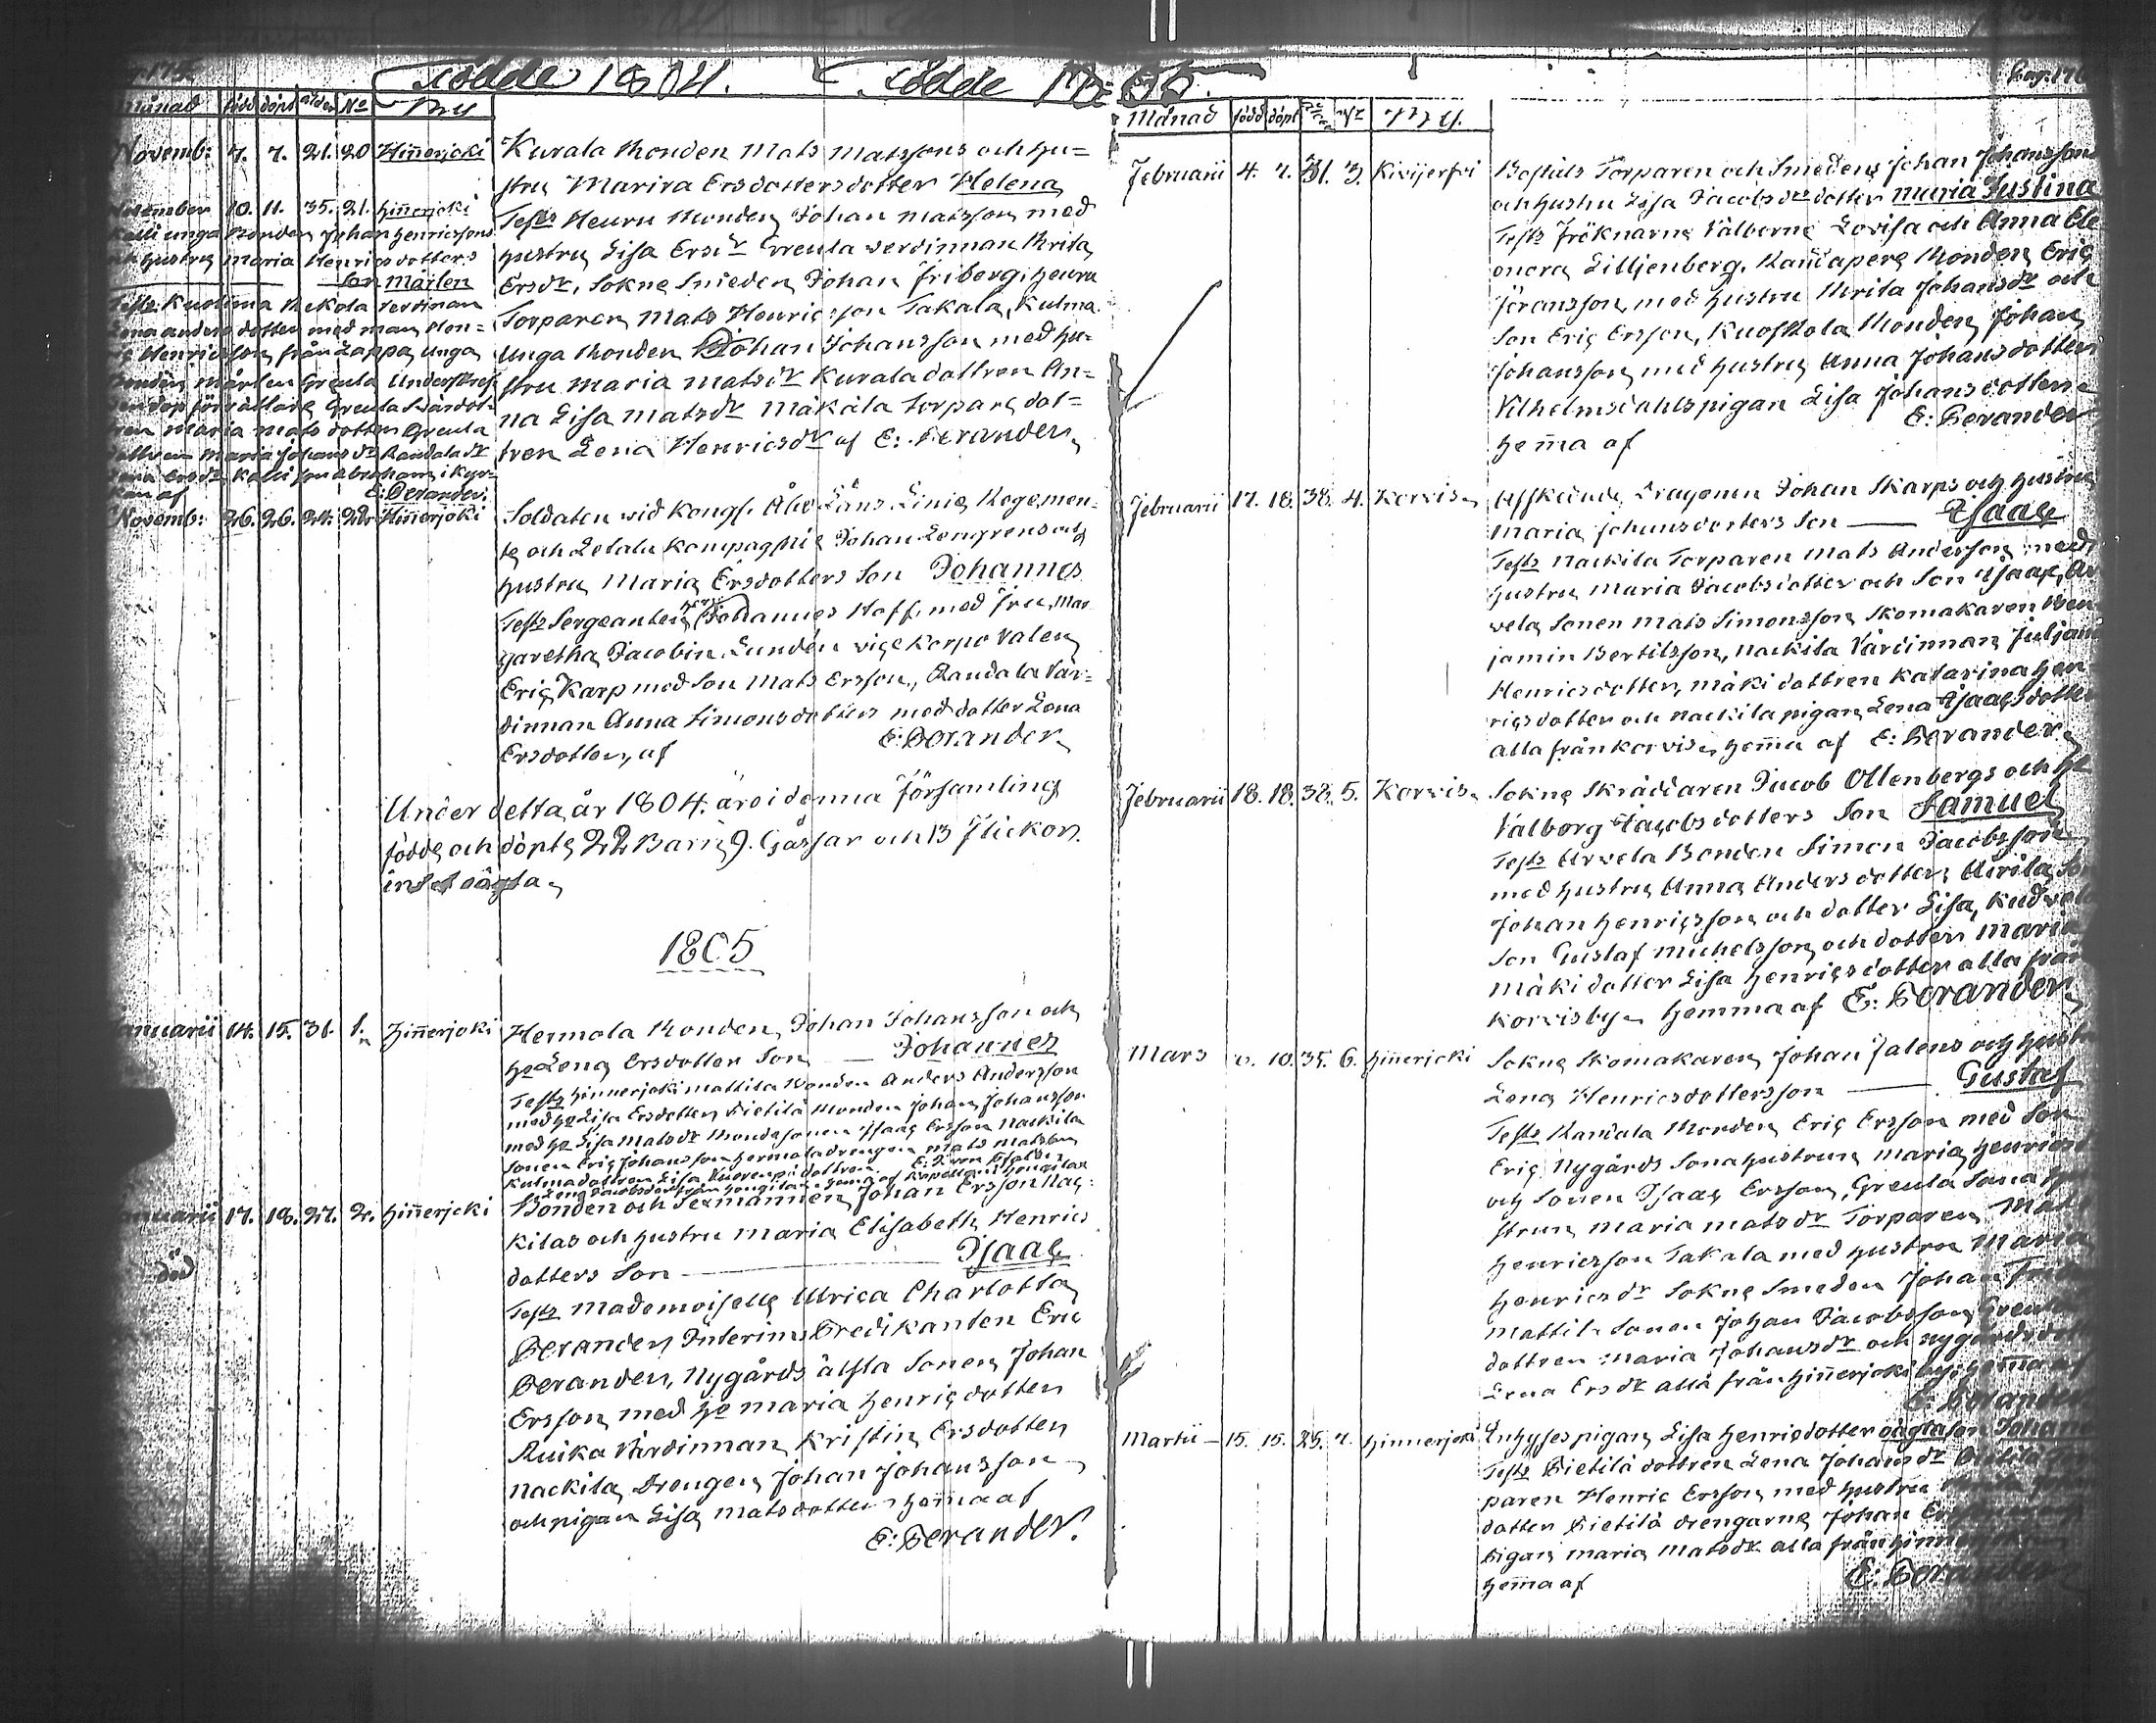 Födde 1804. Födde 1805.
Månad född döpt ålder No By
Novemb: 7. 7. 21. 20 Hiñerjoki Kurala Bonden Mats Matssons och hu=
stru Marira Ersdotters dotter Helena
Testes Heuru Bonden Johan Matsson med
hustru Lisa Ersdr Greula verdinnan Brita
Ersdr, Sokne Smeden Johan Friberg, heuru
Torparen Mats Henricsson Takala, Kulma
unga Bonden Johan Johansson med hu=
stru Maria Matsdr Kurala dottren An=
na Lisa Matsdr Mäkälä Torpare dot=
tren Lena Henricsdr af E: Berander
November 10. 11. 35. 21. hiñerjoki
Kalli unga Bonden Johan Henricssons
och hustru Maria Henricsdotters
Son Mårten
Testes Kuolima Mekola verdinnan
Lena anders dotter med man Hen=
Henricsson från Lappa, unga
Bonden Mårten Greula Underskref
förrättade Greula
Maria Mats dotter Greula
dottren Maria Johansdr Randala
Ersdr Kalli son Abraham i Kyr=
kan af E: Berander.
Novemb: 26. 26. 24. 22. Hiñerjoki Soldaten vid Kongl. Åbo Läns Linie Regemen=
te och Letala Kompagnie Johan Lemgrens och
hustru Maria Ersdotters Son Johannes
Testes Sergeanten herr Johannes Hoff med Fru Mar
garetha Jacobin Lundén vice Korporalen
Eric Karp med Son Mats Ersson, Randala Vär=
dinnan Anna Simonsdotter med dotter Lena
Ersdotter, af E: Berander
Under detta år 1804. äro i denna Församling
födde och döpte 22 Barn, 9. Gåssar och 13 Flickor.
intet oägta
1805
Januarii 14. 15. 31. 1. hiñerjoki Hermola Bonden Johan Johansson och
ho Lena Ersdotter Son Johannes
Testes hinnerjoki Mattila Bonden Anders Andersson
med ho Lisa Ersdotter, Pietilä Bonden Johan Johansson
med ho Lisa Matsdr Bonde sonen Isaac Ersson Nackila
Sonen Eric Johansson hermola drengen Mats Matsson
Kulma dottren Lisa
Januarii 17. 18. 27. 2. hiñerjoki Bonden och Sexmannen Johan Ersson Nac=
kilas och hustru Maria Elisabeth Henrics
dotters Son Isaac
död
Testes Mademoiselle Ulrica Charlotta
Berander, Interims Predikanten Eric
Berander, Nygårds älsta Sonen Johan
Ersson med ho Maria henricsdotter
Ruika Värdinnan Kristin Ersdotter
Nackila Drengen Johan Johansson
och pigan Lisa Matsdotter hem̄a af
E: Berander.
Pag: 176
Månad född döpt No By.
Februarii 4. 7. 31. 3. Kivijerfvi Bostäls Torparen och Smedens Johan Johansson
och hustru Lisa Jacobsdrs dotter Maria Justina
Testes Fröknarne Välborne Lovisa och Anna Ele
onora Lilljenberg. Kañapere Bonden Eric
Jöransson med hustru Brita Johansdr och
Son Eric Ersson, Kuoskola Bonden Johan
Johansson med hustru Anna Johansdotter
Vilhelmsdahls pigan Lisa Johansdotter
hem̄a af E: Berander
Februarii 17. 18. 38. 4. Korvis Afskedade Dragonen Johan Skarps och hustru
Maria Johansdotters Son Isaac
Testes Nackila Torparen Mats Andersson med
hustru Maria Jacobsdotter och Son Isaac, Ar
vela Sonen Mats Simonsson Skomakaren Ben
jamin Bertilsson, Nackila Värdinnan Juljana
Henricsdotter, Mäki dottren Katarina Hen
ricsdotter och Nackila pigan Lena Isaacsdotter
alla från Korvis hem̄a af E: Berander
Februarii 18. 18. 38. 5. Korvis Sokne Skräddaren Jacob Ollenbergs och hu
Valborg Jacobsdotters Son Samuel
Testes Arvela Bonden Simon Jacobsson
med hustru Anna Andersdotter, Uirila Son
Johan Henricsson och dotter Lisa, Kudvola
Son Gustaf Michelsson och dotter Maria
Mäki dotter Lisa Henricsdotter alla från
Korvisby hemma af E: Berander
Mars 10. 35. 6. hiñerjoki Sokne Skomakaren Johan Jalens och hustru
Lena Henricsdotters son Gustaf
Testes Randala Bonden Eric Ersson med Son
Eric, Nygårds Sonahustrun Maria Henrics
och Sonen Isaac Ersson, Greula Sona hu
strun Maria Matsdr Torparen Mats
Henricsson Takala med hustru Maria
Henricsdr Sokne Smeden Johan
Mattila Sonen Johan Jacobsson, Greula
dottren Maria Johansdr och Nygårds
Lena Ersdr alla från hiñerjoki by, hem̄a af
E: Berander
Martii 15. 15. 25. 7. hinnerjoki Inhyses pigan Lisa Henricsdotter oägta son Johan
Testes Pietilä dottren Lena Johansdr
paren Henric Ersson med hustru
dotter Pietilä drengarne Johan
Pigan Maria Matsdr alla från
hem̄a af E: Berander